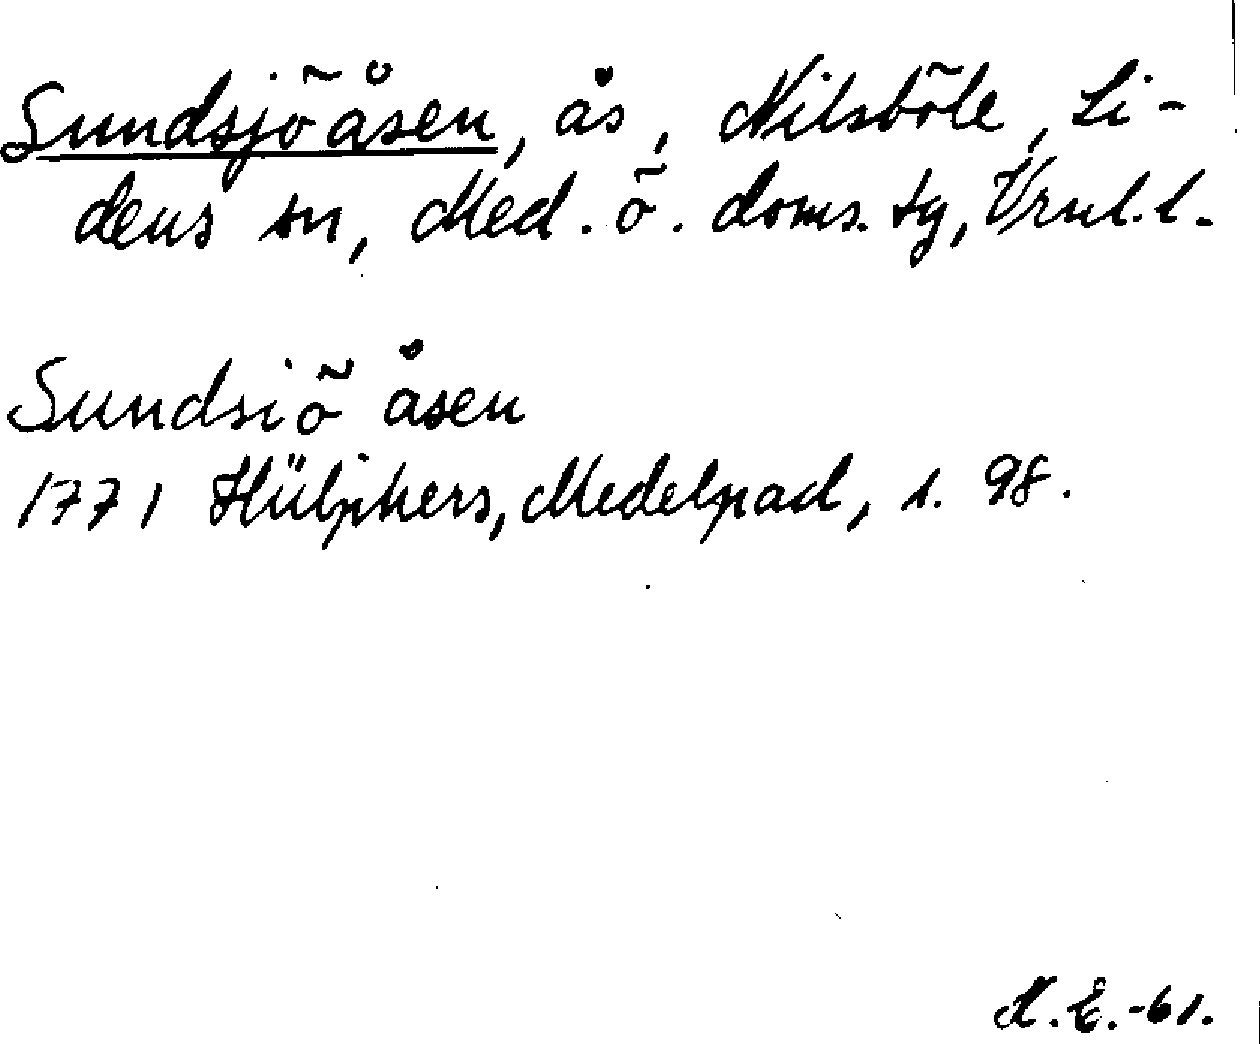 Sundsjöåsen, ås, Nilsböle, Li-
dens sn, Med. ö. doms. tg, Vrnl. l.
Sundsiö åsen
1771 Hülphers, Medelpad, s. 98.
K. E. -61.